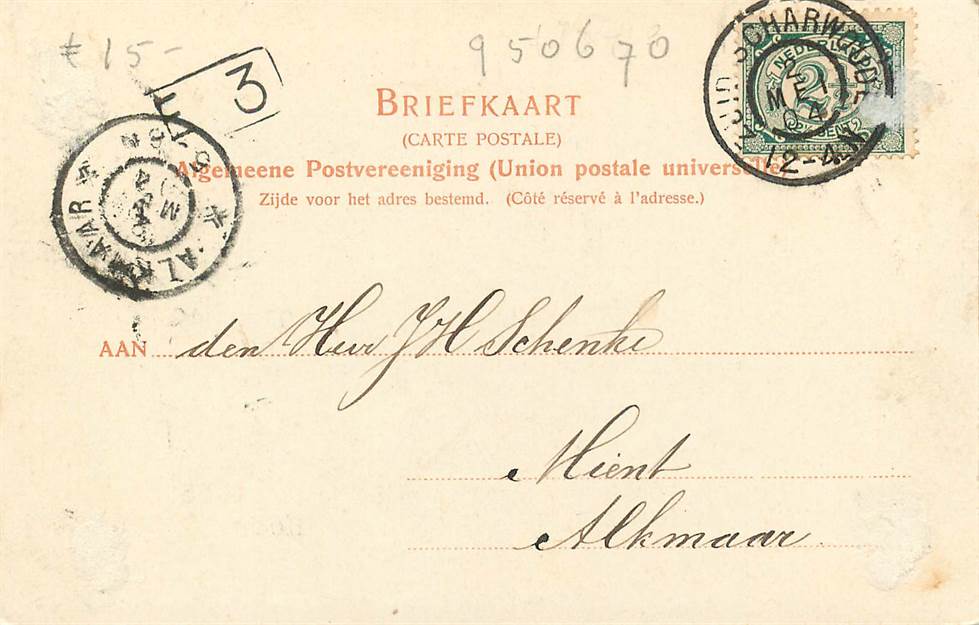 € 15-
950670
3
ZUID SCHARWOUDE
MEI
04
12-4N
NEDERLAND
2½
CENT
BRIEFKAART
(CARTE POSTALE)
Algemeene Postvereeniging (Union postale universelle)
Zijde voor het adres bestemd. (Côté réservé à l'adresse.)
ALKMAAR
AAN den Heer JH Schenke
Mient
Alkmaar